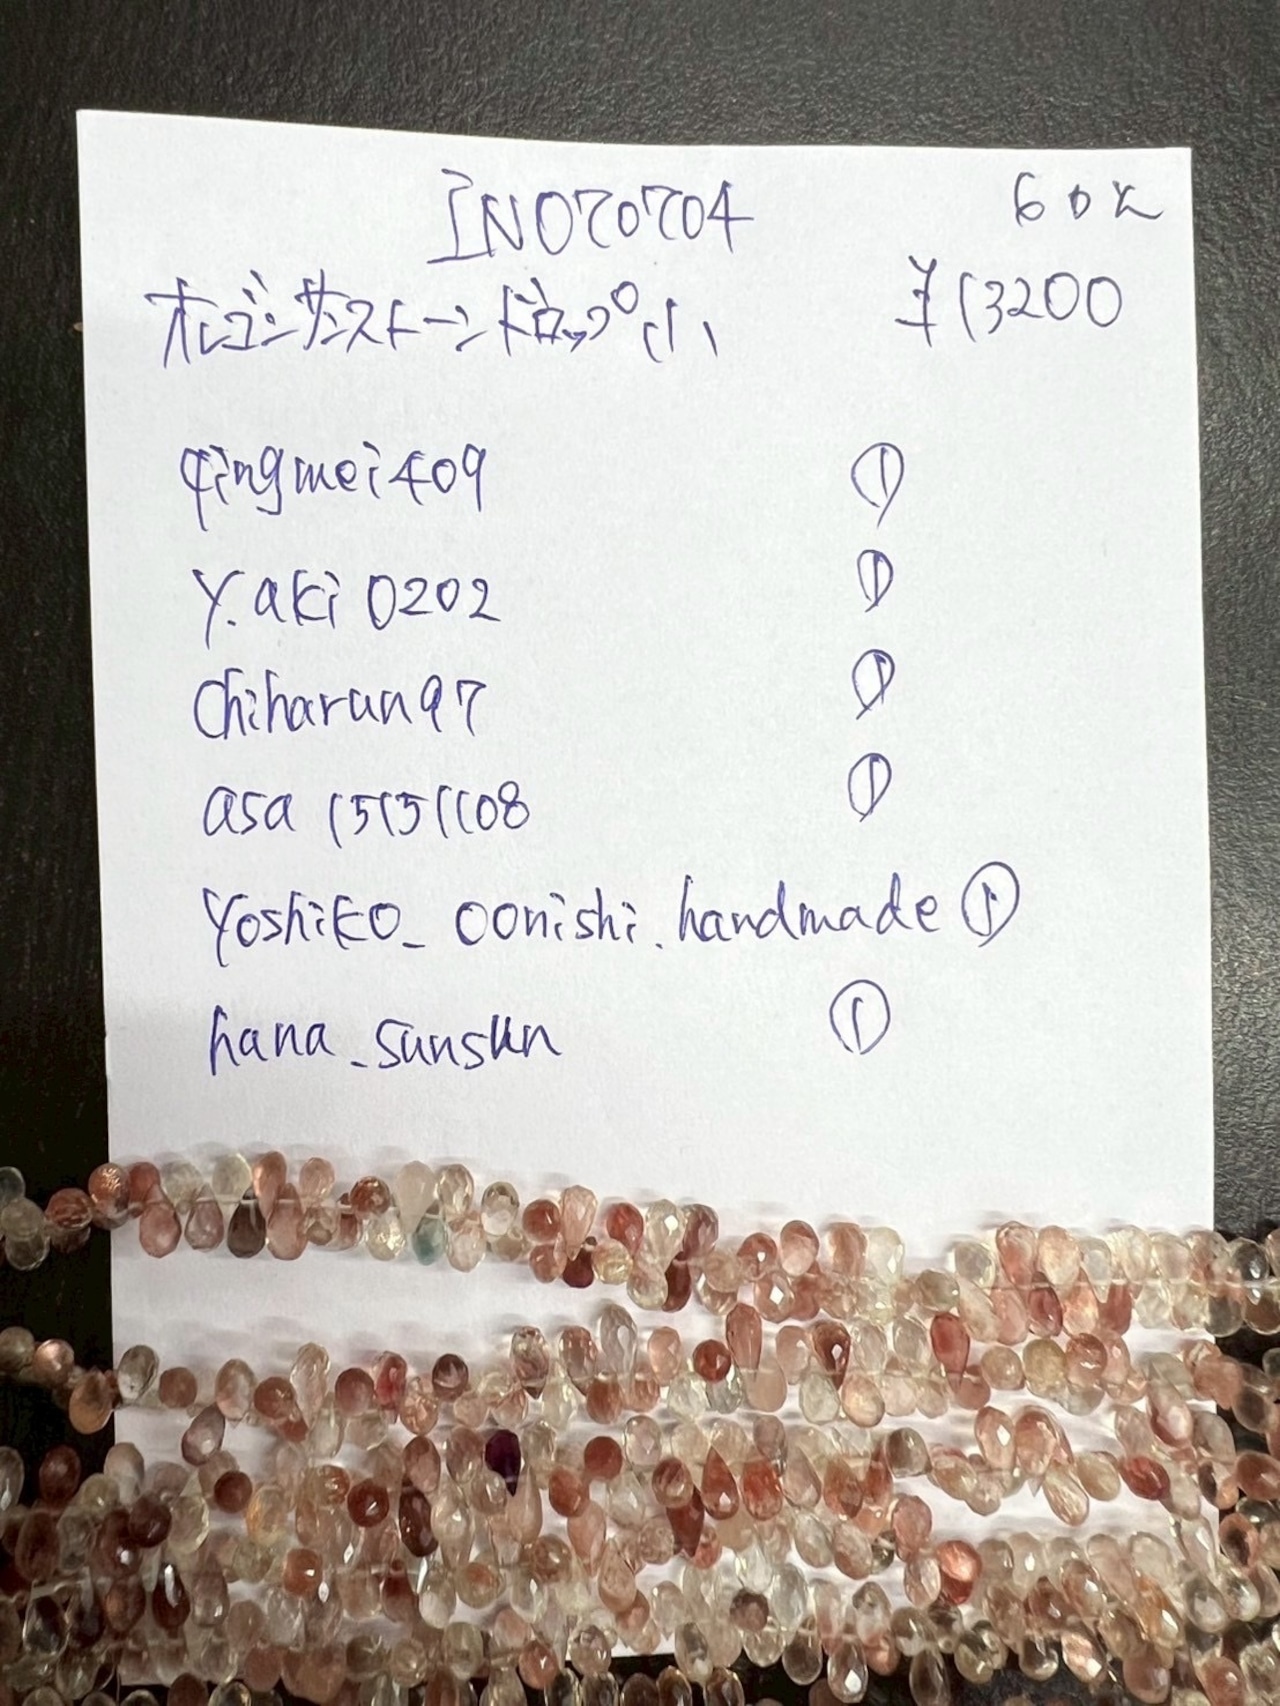 IN070704
60%
オレゴンサンストーンドロップ小
¥13200
qingmei409 ①
y.aki0202 ①
chiharun97 ①
asa15151108 ①
yoshiko_oonishi.handmade ①
hana_sunsun ①